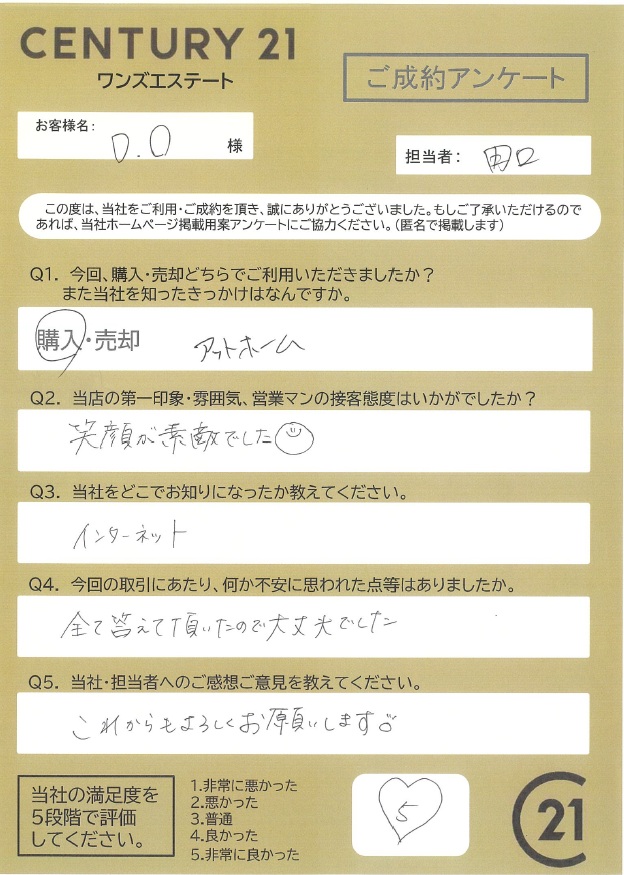 CENTURY 21
ワンズエステート
ご成約アンケート
お客様名：
D.O 様
担当者： 田口
この度は、当社をご利用・ご成約を頂き、誠にありがとうございました。もしご了承いただけるので
あれば、当社ホームページ掲載用案アンケートにご協力ください。（匿名で掲載します）
Q1. 今回、購入・売却どちらでご利用いただきましたか？
また当社を知ったきっかけはなんですか。
購入・売却 アットホーム
Q2. 当店の第一印象・雰囲気、営業マンの接客態度はいかがでしたか？
笑顔が素敵でした
Q3. 当社をどこでお知りになったか教えてください。
インターネット
Q4. 今回の取引にあたり、何か不安に思われた点等はありましたか。
全て答えて頂いたので大丈夫でした
Q5. 当社・担当者へのご感想ご意見を教えてください。
これからもよろしくお願いします
当社の満足度を
5段階で評価
してください。
1.非常に悪かった
2.悪かった
3.普通
4.良かった
5.非常に良かった
5
C21